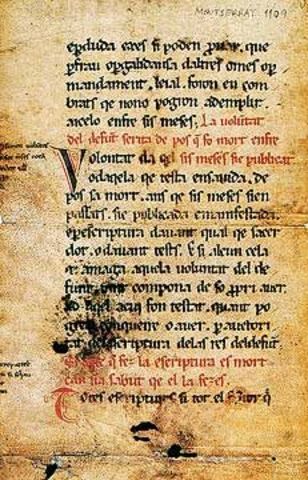 MONTSERRAT 1109
epduda eaces si poden puar. que
p frau daltres omes op
mandament leial. foron en com
brats qe nono pogron ademplir.
aicelo enfre sis meses. La voluntat
del defut scrita de pos q so mort enfre
Volontat da qel sis meses sie publicat
vodaqela qe testa ensauida. de
pos sa mort. ans qe sis meses sien
passats. sie publicada emanifestada.
epescriptura dauant qual qe sacer
dot. odauant tests. E si alcun cela
oamaga aquela voluntat del de
funt. compona de so ppri auer.
aqel acui fon testat. quant po
conquerre o auer. p auctori
tat del escriptura delas res del defut.
q fez la escriptura es mort
sabut qe el la fezes.
Totes escriptures si tot el q